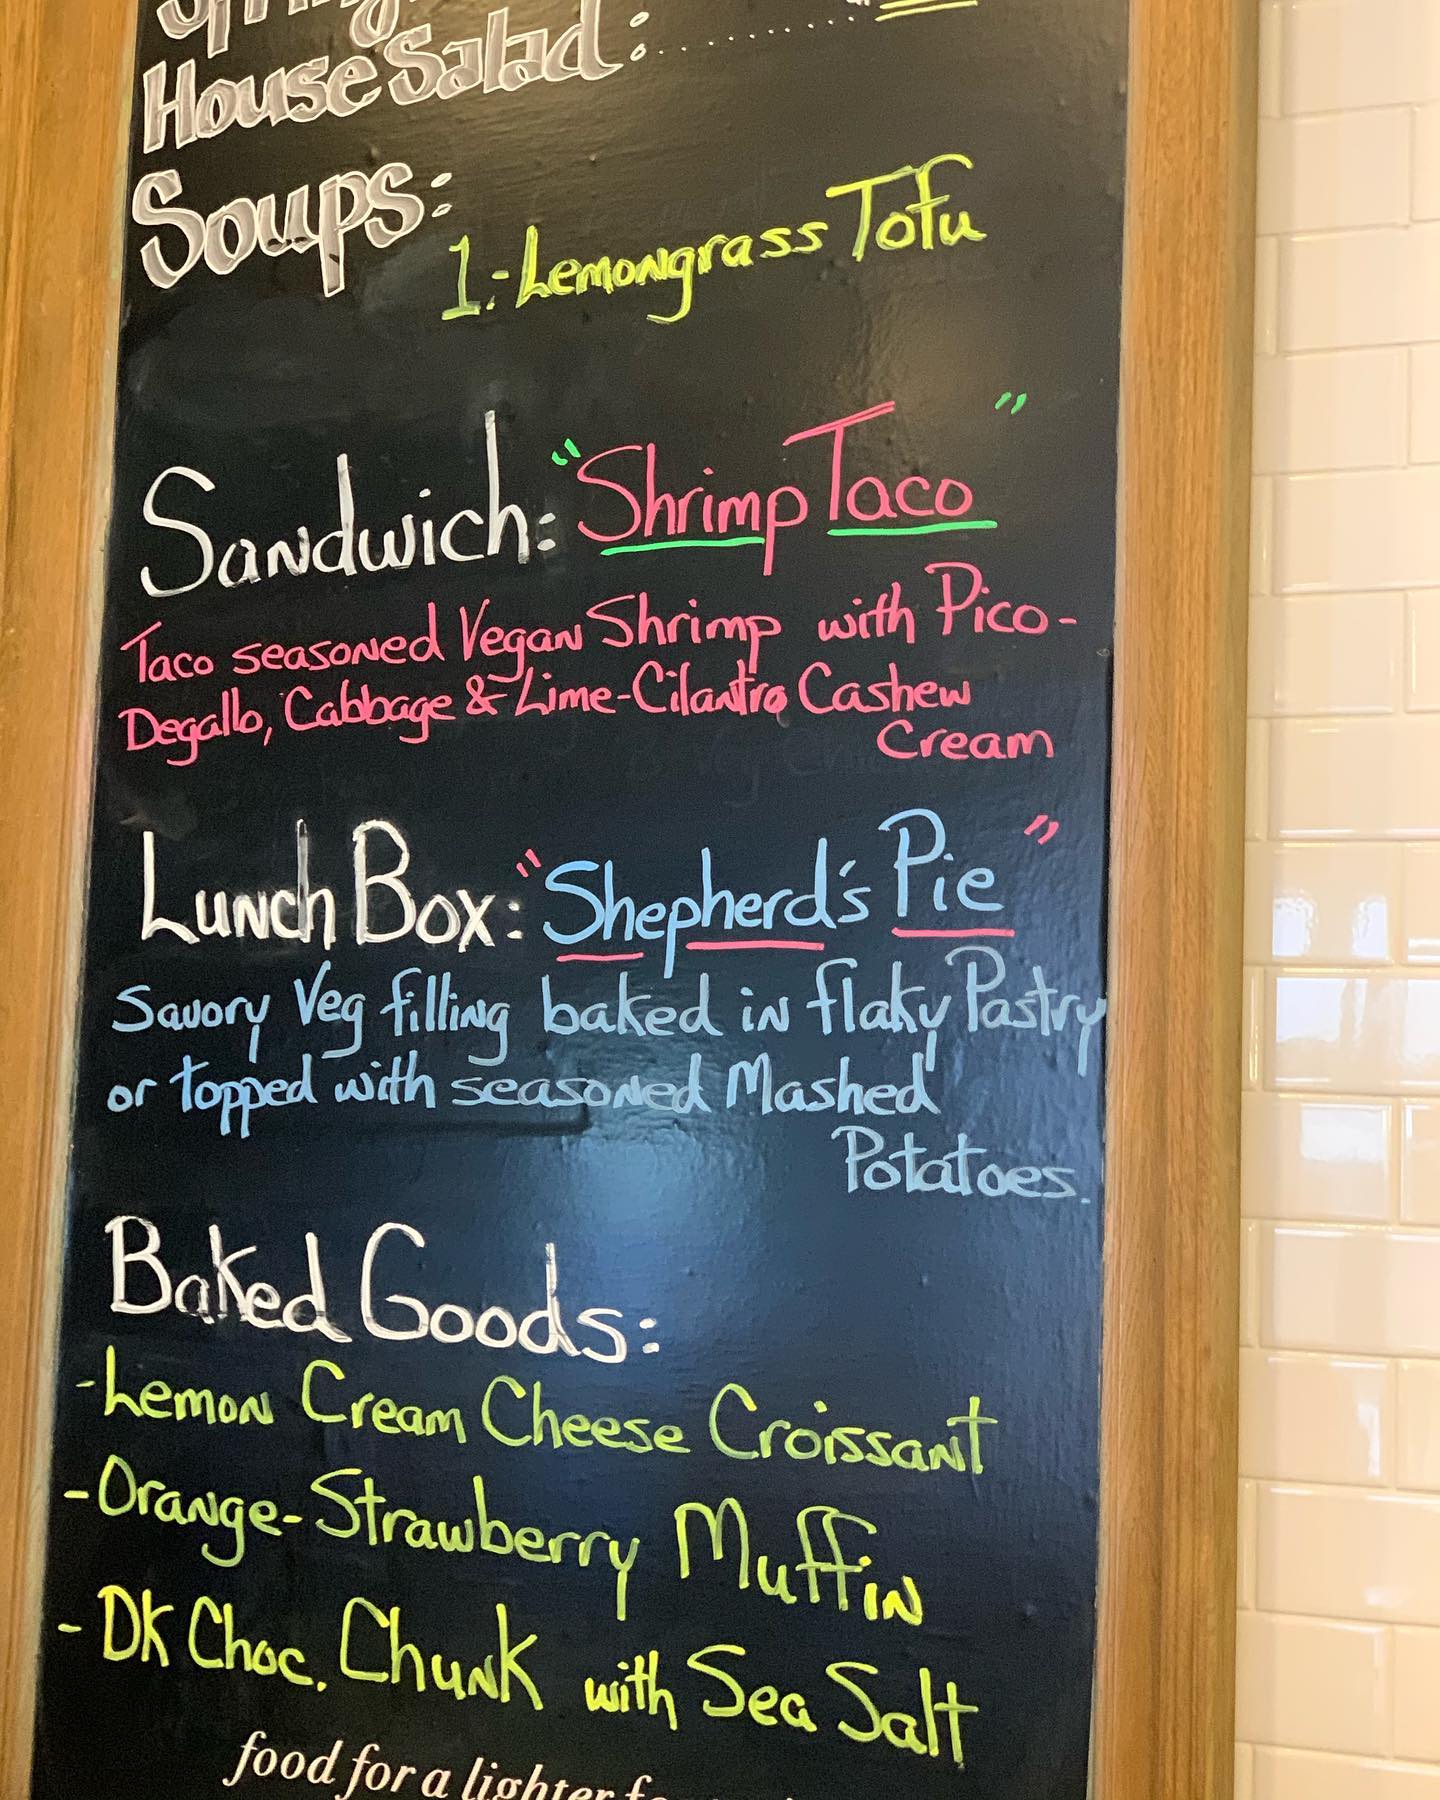 House Salad:..............
Soups:
1.-Lemongrass Tofu
Sandwich: "Shrimp Taco"
Taco seasoned Vegan Shrimp with Pico-
Degallo, Cabbage & Lime-Cilantro Cashew
Cream
Lunch Box: "Shepherd's Pie"
Savory Veg filling baked in flaky Pastry
or topped with seasoned Mashed
Potatoes.
Baked Goods:
-Lemon Cream Cheese Croissant
-Orange-Strawberry Muffin
-DK Choc. Chunk with Sea Salt
food for a lighter